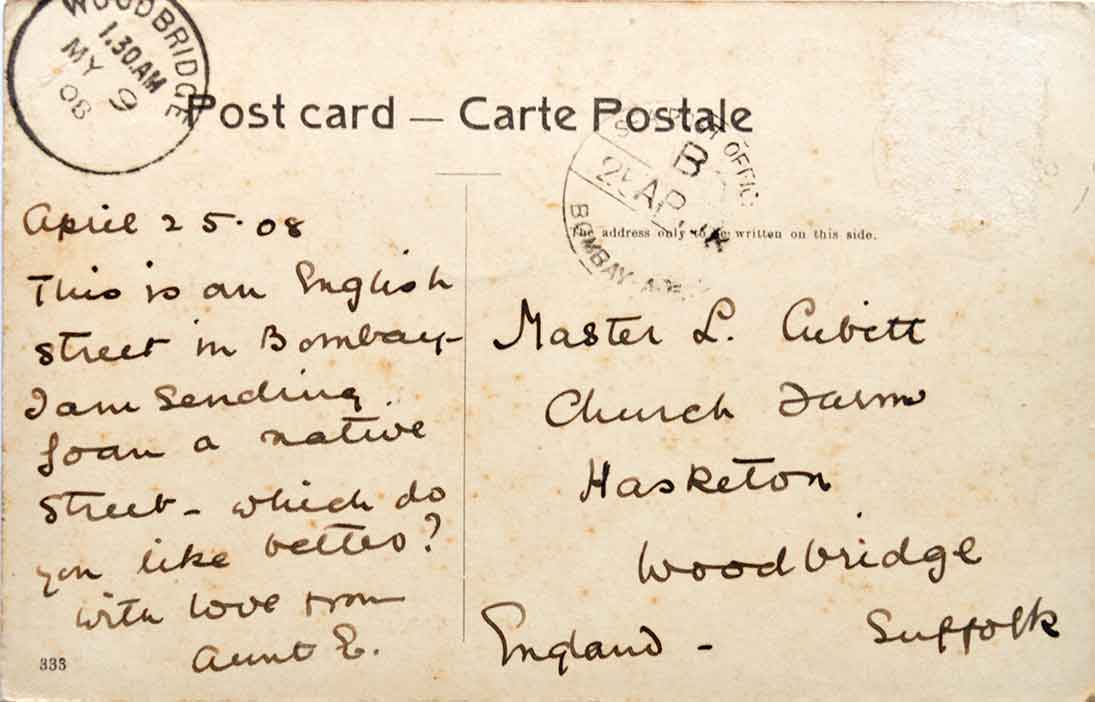 WOODBRIDGE
1.30AM
MY 9
08
Post card — Carte Postale
OFFICE
B
AP
BOMBAY
The address only to be written on this side.
April 25.08
This is an English
street in Bombay-
I am sending
Joan a native
street - which do
you like better?
with love from
Aunt E.
333
Master L. Cubitt
Church Farm
Hasketon
Woodbridge
Suffolk
England -